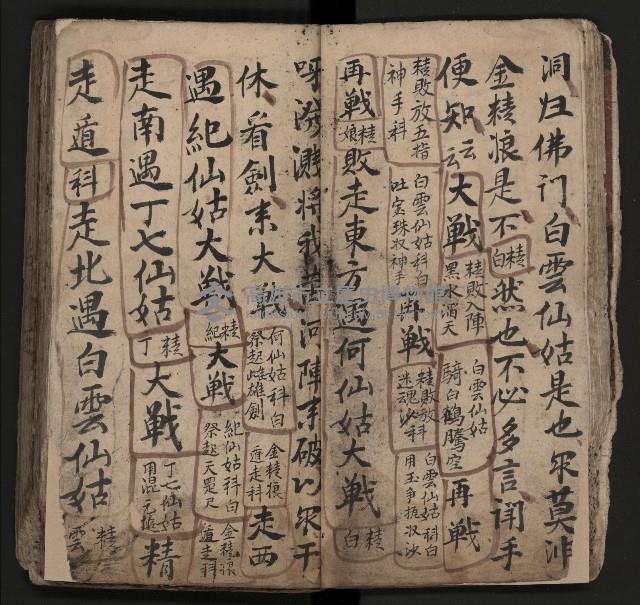 洞归佛门白雲仙姑是也尔莫非
金精浪是不 白 精 然也不必多言闭手
便知云大戰 精敗入陣 黑水滔天 白雲仙姑 騎白鶴騰空 再戰
精敗放五指 神手科 白雲仙姑科白 吐宝珠收神手 再戰 精敗放科 迷魂沙 白雲仙姑科白 用玉爭瓶收沙
再戰 精 娘 敗走東方遇何仙姑大戰 精 白
呀 將我 河陣來破以尔干
休看劍來大戰 何仙姑科白 祭起雌雄劍 金精狼 遁走科 走西
遇紀仙姑大戰 精 紀 大戰 紀仙姑科白 祭起天罡尺 金精狼 遁走科
走南遇丁七仙姑 精 丁 大戰 丁七仙姑 用混元 精
走遁科走北遇白雲仙姑 精 雲
高雄市立歷史博物館